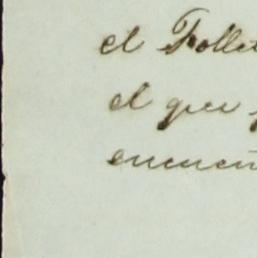 el Follet
el que
encuen